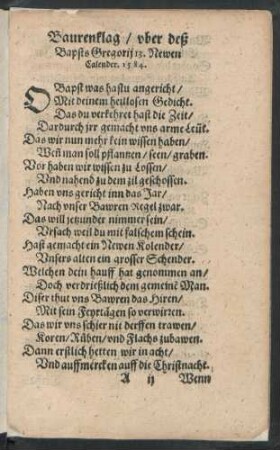 Baurenklag / vber deß
Bapsts Gregorij 13. Newen
Calender. 1584.
O Bapst was hastu angericht /
Mit deinem heillosen Gedicht.
Das du verkehret hast die Zeit /
Dardurch jrr gemacht vns arme Leüt.
Das wir nun mehr kein wissen haben /
Weñ man soll pflantzen / seen / graben.
Vor haben wir wissen zu Lossen /
Vnd nahend zu dem zil geschossen.
Haben vns gericht inn das Jar /
Nach vnser Bawren Regel zwar.
Das will jetzunder nimmer sein /
Vrsach weil du mit falschem schein.
Hast gemacht ein Newen Kolender /
Vnsers alten ein grosser Schender.
Welchen dein hauff hat genommen an /
Doch verdrießlich dem gemeinẽ Man.
Diser thut vns Bawren das Hiren /
Mit sein Feyrtägen so verwirren.
Das wir vns schier nit derffen trawen /
Koren / Rüben / vnd Flachs zubawen.
Dann erstlich hetten wir in acht /
Vnd auffmercken auff die Christnacht.
A ij Wenn